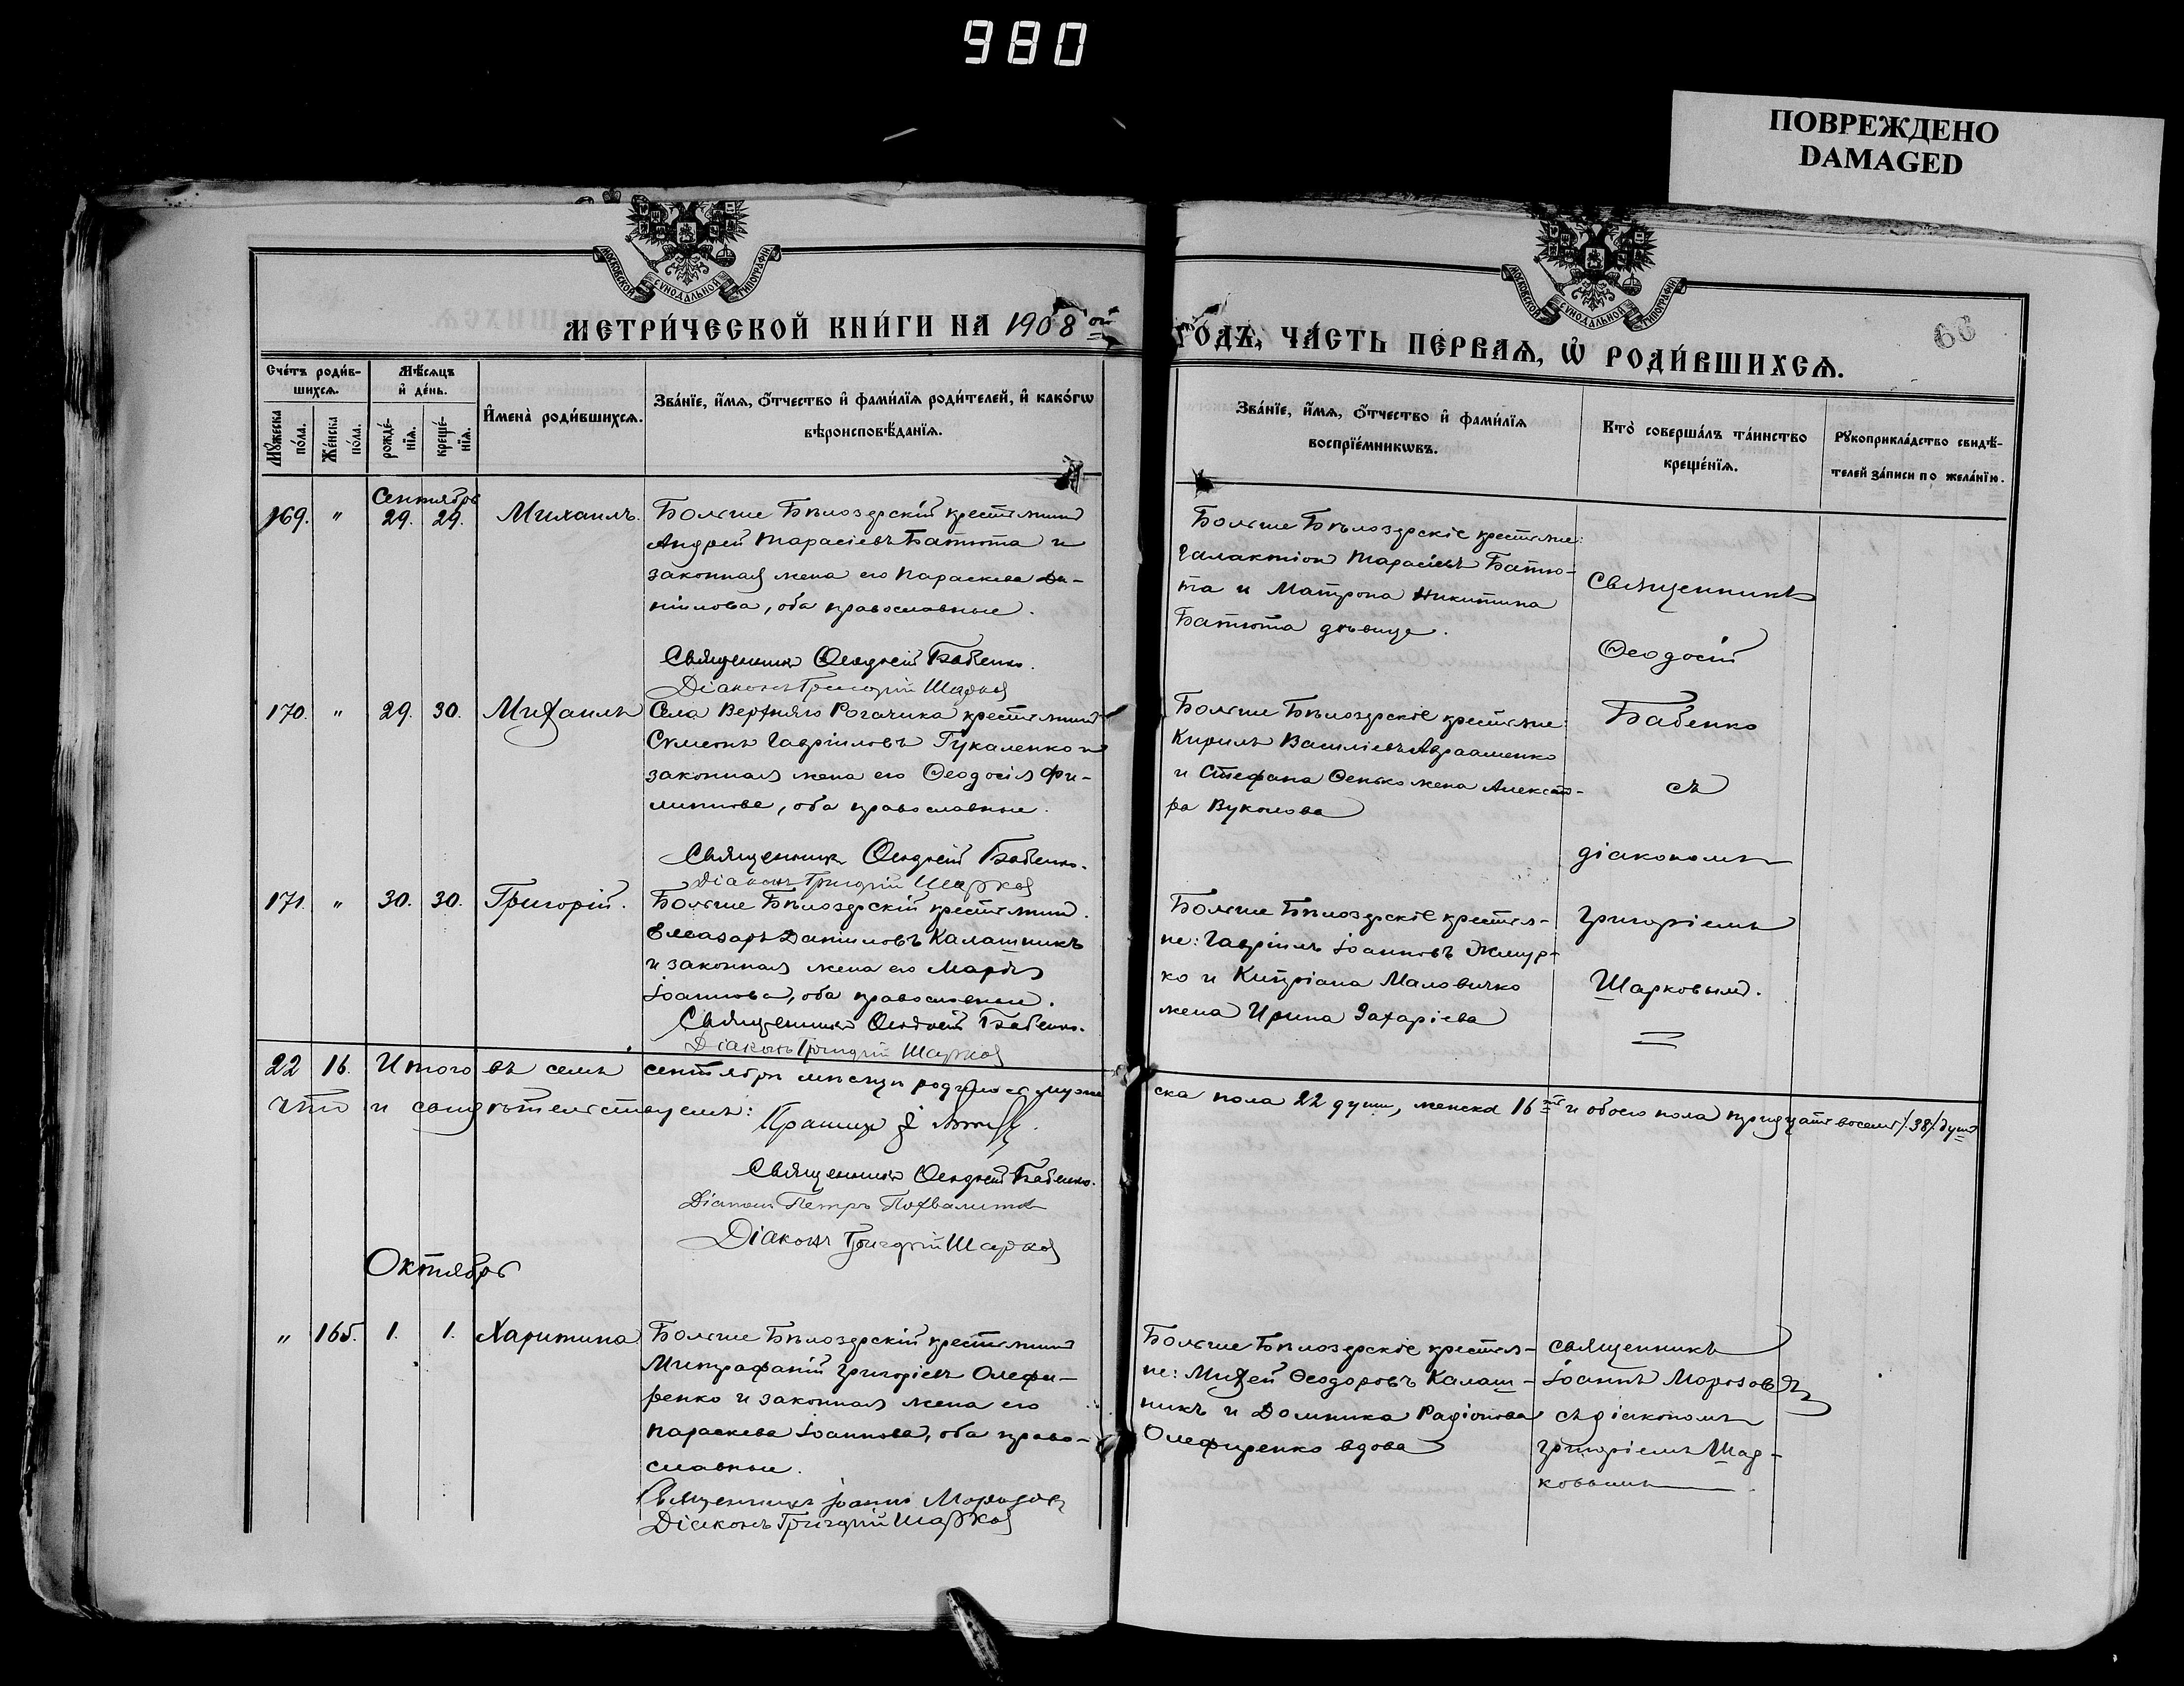 980
ПОВРЕЖДЕНО
DAMAGED
МОСКОВСКОЙ СѴНОДАЛЬНОЙ ТИПОГРАФІИ
МОСКОВСКОЙ СѴНОДАЛЬНОЙ ТИПОГРАФІИ
МЕТРИ́ЧЕСКОЙ КНИ́ГИ НА 1908 ой
ГОДЪ, ЧА́СТЬ ПЕРВАѦ, Ѡ҆ РОДИ́ВШИХСѦ.
60
Сче́тъ роди́в-
шихсѧ.
Мѣ́сѧцъ
и҆ де́нь.
Мꙋ́жеска по́ла.
Же́нска по́ла.
рожде́-нїѧ.
креще́-нїѧ.
И҆мена̀ роди́вшихсѧ.
Зва́нїе, и҆́мѧ, ѻ҆́тчество и҆ фами́лїѧ роди́телей, и҆ како́гѡ
вѣроисповѣ́данїѧ.
Зва́нїе, и҆́мѧ, ѻ҆́тчество и҆ фами́лїѧ
воспрїе́мникѡвъ.
Кто̀ соверша́лъ та́инство
креще́нїѧ.
Рꙋкоприкла́дство свидѣ́-
телей за́писи по жела́нїю.
Сентябрь
169. " 29. 29. Михаилъ.
Больше Бѣлозерскій крестьянинъ
Андрей Тарасіевъ Батюта и
законная жена его Параскева Да-
ніилова, оба православные.
Священникъ Ѳеодосій Бабенко.
Діаконъ Григорій Шарков
Больше Бѣлозерскіе крестьяне:
Галактіон Тарасіевъ Батю-
та и Матрона Никитина
Батюта дѣвица.
Священникъ
Ѳеодосій
Бабенко
съ
діакономъ
Григоріемъ
Шарковымъ.
170. " 29. 30. Михаилъ
Села Верхняго Рогачика крестьянинъ
Сѵмеонъ Гавріиловъ Гукаленко и
законная жена его Ѳеодосія Фи-
липпова, оба православные.
Священникъ Ѳеодосій Бабенко.
Діаконъ Григорій Шарков
Больше Бѣлозерскіе крестьяне:
Кирилъ Василіевъ Авраменко
и Стефана Сенько жена Алексан-
ра Вуколова
171. " 30. 30. Григорій.
Больше Бѣлозерскій крестьянин.
Елеазаръ Даніиловъ Калашникъ
и законная жена его Марѳа
Іоаннова, оба православные.
Священникъ Ѳеодосій Бабенко.
Діаконъ Григорій Шарков
Больше Бѣлозерскіе крестья-
не: Гавріилъ Іоанновъ Жмур-
ко и Кипріана Маловичко
жена Ирина Захаріева
22 16. Итого въ семъ сентябрѣ мѣсяцѣ родилось муже
ска пола 22 души, женска 16ть и обоего пола тридцать восемь /38/ душ
что и свидѣтельствуемъ:
Священникъ Ѳеодосій Бабенко.
Діаконъ Петръ
Діаконъ Григорій Шарков
Октябрь
" 165. 1. 1. Харитина
Больше Бѣлозерскій крестьянинъ
Митрофаній Григоріевъ Олефи-
ренко и законная жена его
Параскева Іоаннова, оба право-
славные.
Священникъ Іоаннъ Морозов
Діаконъ Григорій Шарков
Больше Бѣлозерскіе крестья-
не: Михей Ѳеодоровъ Калаш-
никъ и Домника Радіонова
Олефиренко вдова
священникъ
Іоаннъ Морозовъ
съ діакономъ
Григоріемъ Шар-
ковымъ